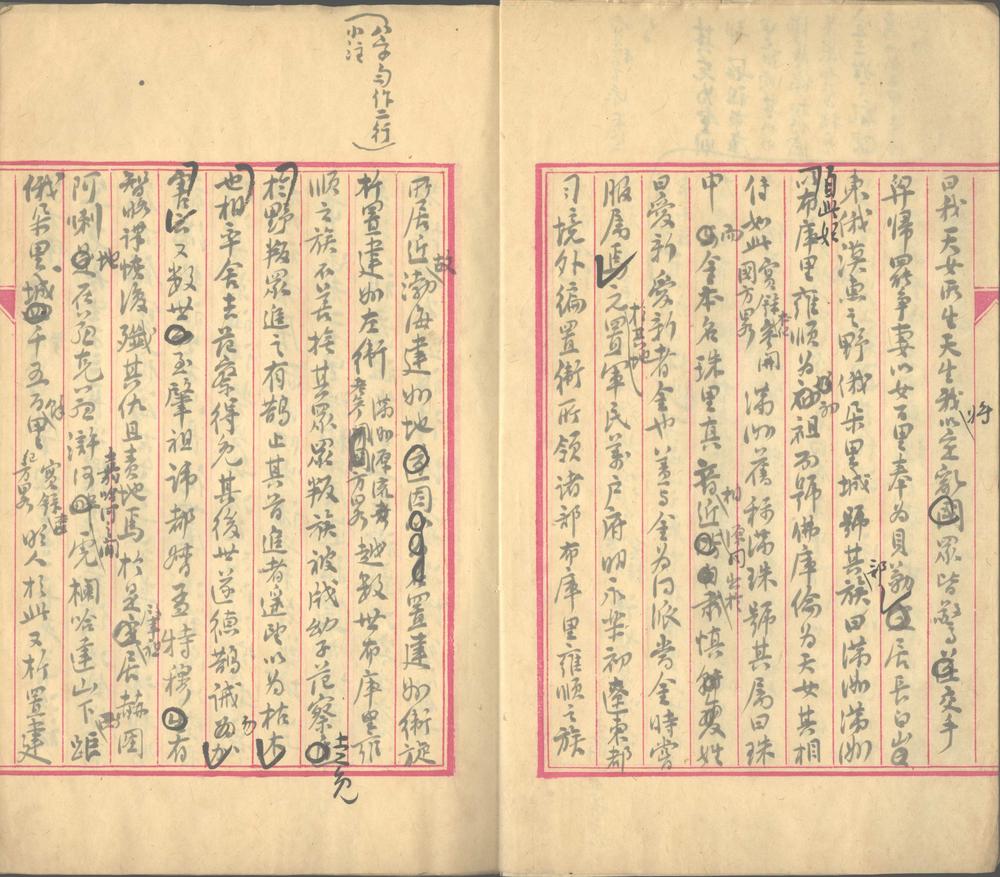 曰我天女所生天生我以定亂國眾皆驚交手
舁歸罷爭妻以女百里奉為貝勒居長白山
東俄漠惠之野俄朵里城號其族曰滿洲滿洲
自此始
布庫里雍順為始祖而號佛庫倫為天女其相
傳如此實錄開國方畧滿洲舊稱滿珠號其屬曰珠
申而金本名珠里真相近音源同出於裔慎變姓
曰愛新愛新者金也蓋與金為同派當金時嘗
服屬元置軍民萬戶府明永樂初遼東都
司境外編置衛所領諸部布庫里雍順之族
所居近渤海建州地故因置建州衛旋
析置建州左衛滿洲源流考開國方畧越數世布庫里雍
順之族不善撫其眾眾叛族被戕幼子范察走免
於野叛眾追之有鵲止其首追者遙望以為枯木
也相率舍去范察得免其後世遂德鵲誡勿加
害云又數世至肇祖諱都督孟特穆有
智略謀恢復殲其仇且責地焉於是肇祖居赫圖
阿喇地在蘇克蘇滸河虎欄哈達山下距
俄朵里城西千五百餘里實錄開國方畧明人於此又析置建
(八字句作二行
小注)